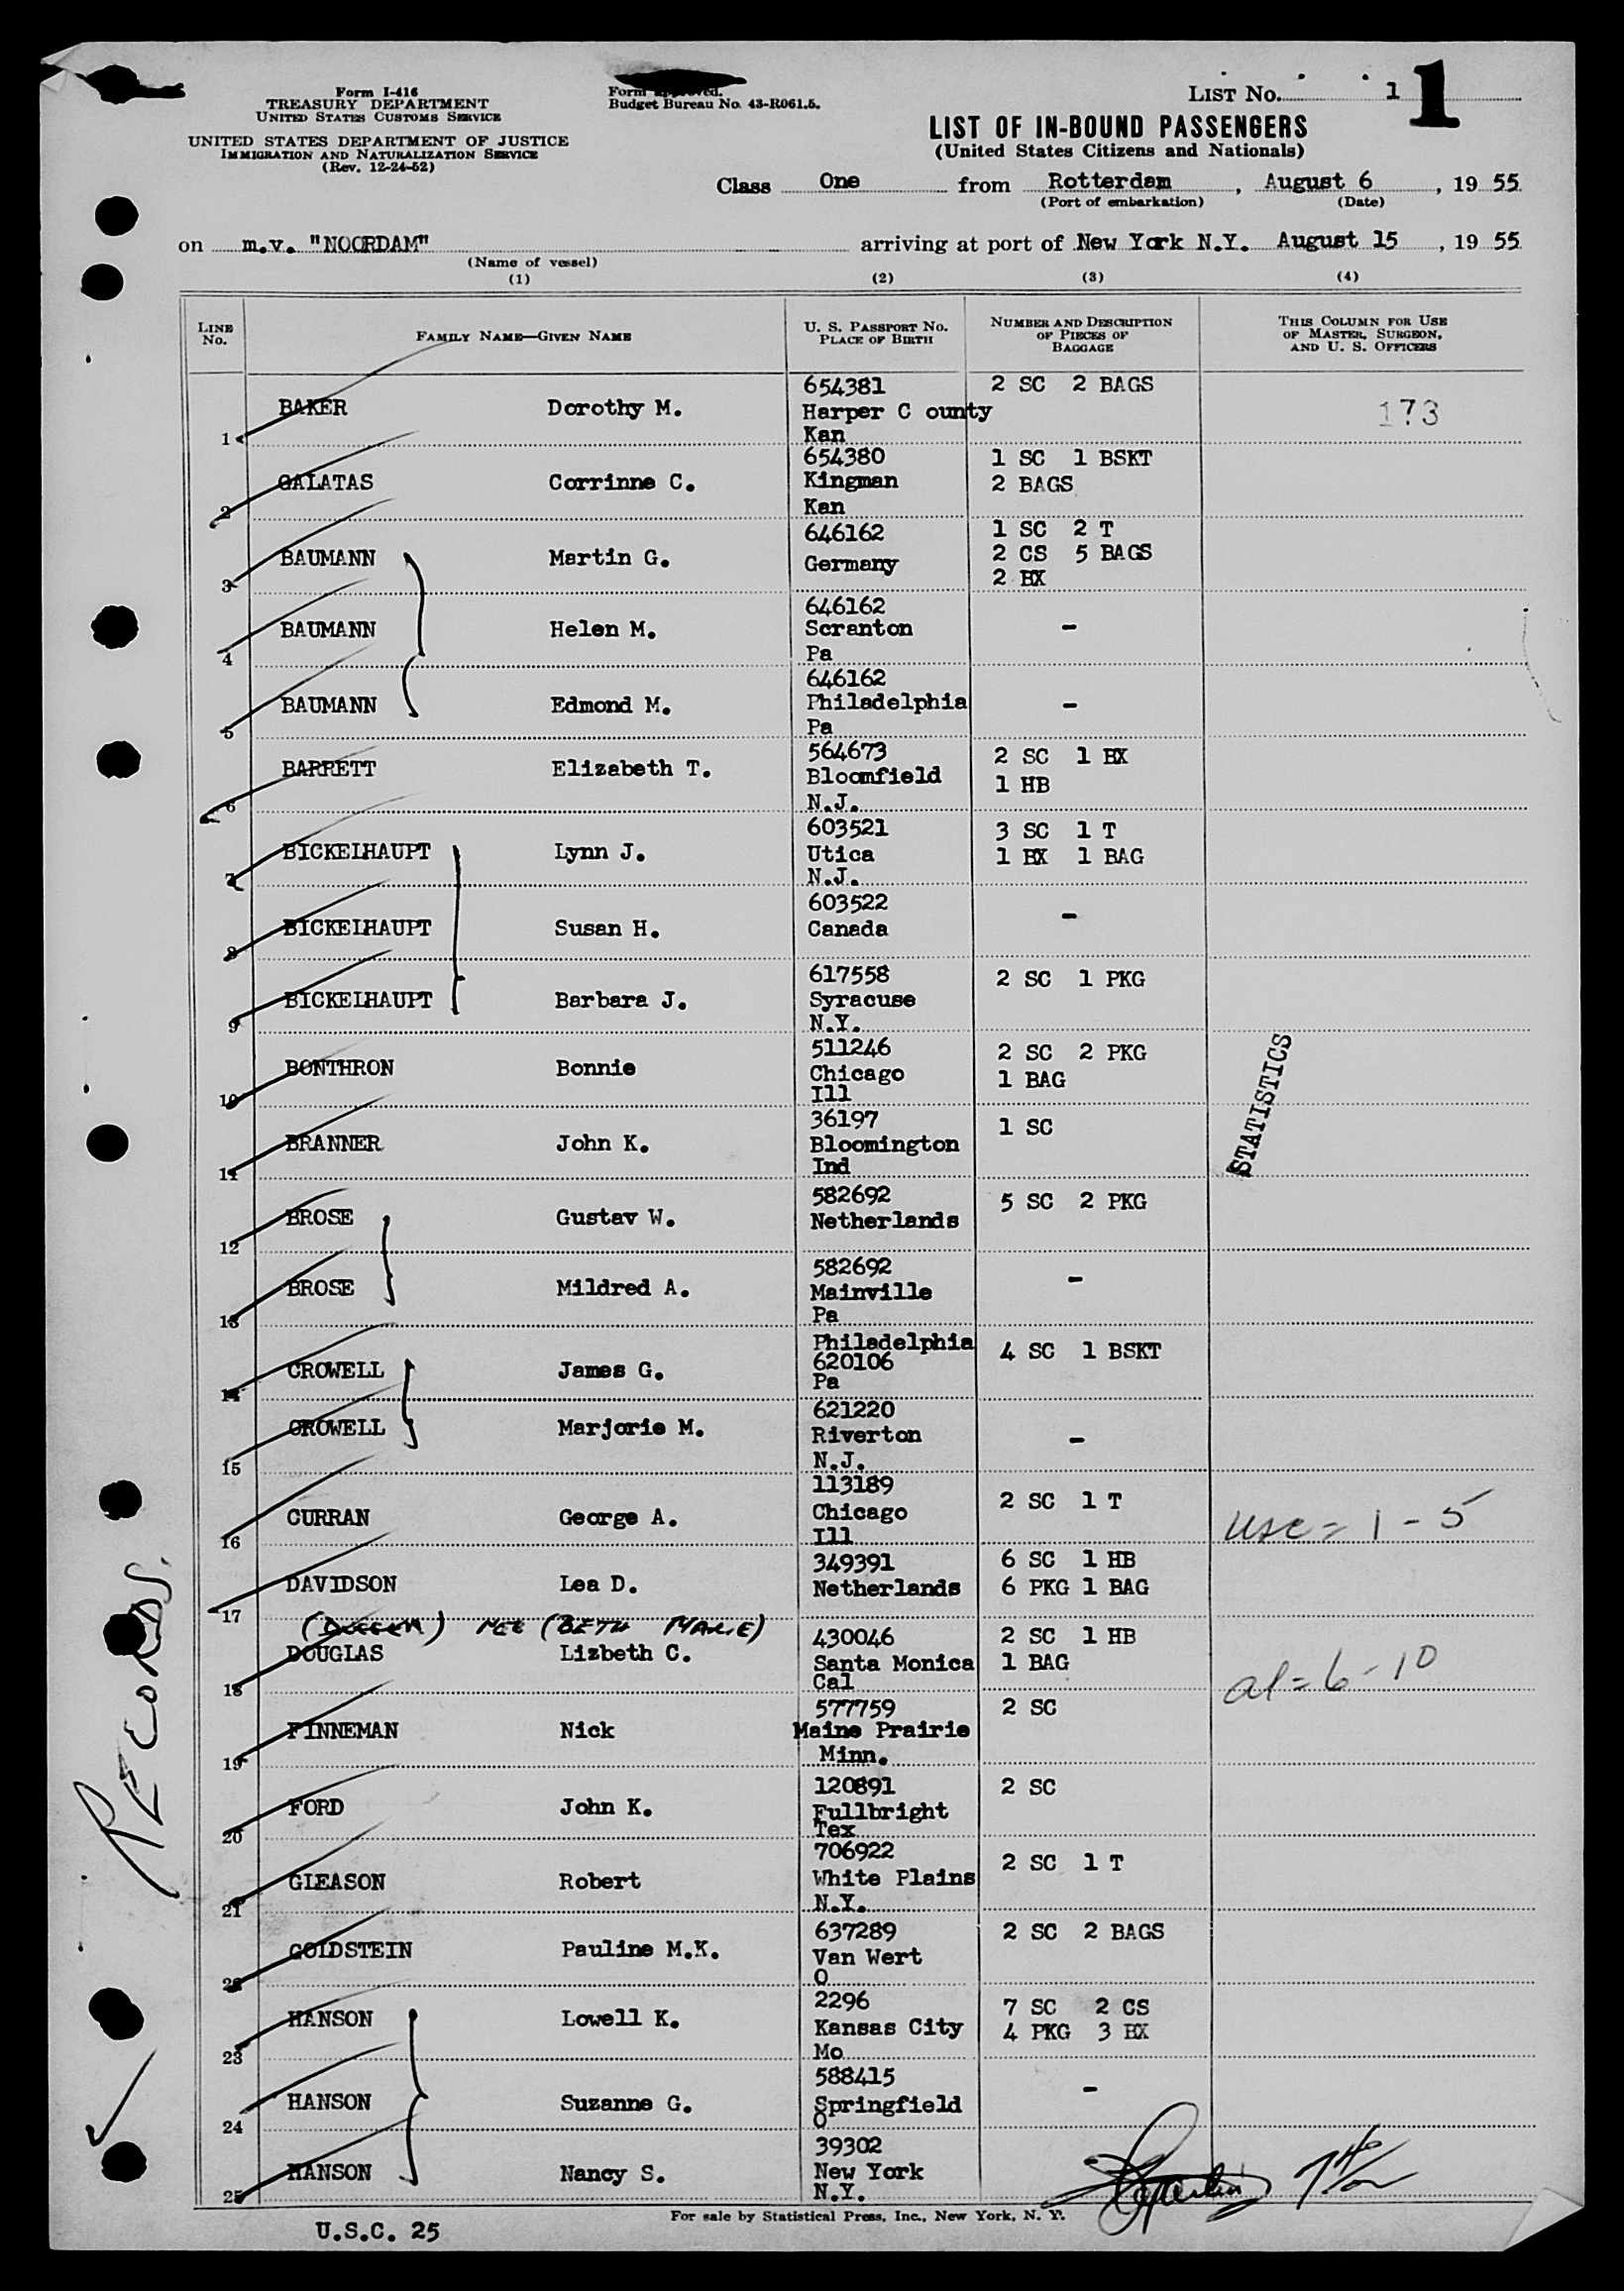 Form I-416
TREASURY DEPARTMENT
UNITED STATES CUSTOMS SERVICE
UNITED STATES DEPARTMENT OF JUSTICE
IMMIGRATION AND NATURALIZATION SERVICE
(Rev. 12-24-52)
Form approved.
Budget Bureau No. 43-R061.5.
LIST No. 1 1
LIST OF IN-BOUND PASSENGERS
(United States Citizens and Nationals)
Class One from Rotterdam, August 6, 19 55
(Port of embarkation) (Date)
on m.v. "NOORDAM" arriving at port of New York N.Y. August 15, 19 55
(Name of vessel)
(1) (2) (3) (4)
LINE No. FAMILY NAME—GIVEN NAME U. S. PASSPORT No. PLACE OF BIRTH NUMBER AND DESCRIPTION OF PIECES OF BAGGAGE THIS COLUMN FOR USE OF MASTER, SURGEON, AND U. S. OFFICERS
654381 2 SC 2 BAGS
1 BAKER Dorothy M. Harper C ounty 173
Kan
654380 1 SC 1 BSKT
2 GALATAS Corrinne C. Kingman 2 BAGS
Kan
646162 1 SC 2 T
3 BAUMANN Martin G. Germany 2 CS 5 BAGS
2 BX
646162
4 BAUMANN Helen M. Scranton -
Pa
646162
5 BAUMANN Edmond M. Philadelphia -
Pa
564673 2 SC 1 BX
6 BARRETT Elizabeth T. Bloomfield 1 HB
N.J.
603521 3 SC 1 T
7 BICKELHAUPT Lynn J. Utica 1 BX 1 BAG
N.J.
603522
8 BICKELHAUPT Susan H. Canada -
617558 2 SC 1 PKG
9 BICKELHAUPT Barbara J. Syracuse
N.Y.
511246 2 SC 2 PKG
10 BONTHRON Bonnie Chicago 1 BAG
Ill
36197 1 SC
11 BRANNER John K. Bloomington
Ind
STATISTICS
582692 5 SC 2 PKG
12 BROSE Gustav W. Netherlands
582692
13 BROSE Mildred A. Mainville -
Pa
Philadelphia
14 CROWELL James G. 620106 4 SC 1 BSKT
Pa
621220
15 CROWELL Marjorie M. Riverton -
N.J.
113189
16 CURRAN George A. Chicago 2 SC 1 T
Ill
usc = 1 - 5
349391 6 SC 1 HB
17 DAVIDSON Lea D. Netherlands 6 PKG 1 BAG
NEE (BETH MARIE)
430046 2 SC 1 HB
18 DOUGLAS Lizbeth C. Santa Monica 1 BAG
Cal
al = 6 - 10
577759 2 SC
19 FINNEMAN Nick Maine Prairie
Minn.
120891 2 SC
20 FORD John K. Fullbright
Tex
706922 2 SC 1 T
21 GLEASON Robert White Plains
N.Y.
637289 2 SC 2 BAGS
22 GOLDSTEIN Pauline M.K. Van Wert
O
2296 7 SC 2 CS
23 HANSON Lowell K. Kansas City 4 PKG 3 BX
Mo
588415
24 HANSON Suzanne G. Springfield -
O
39302
25 HANSON Nancy S. New York
N.Y.
For sale by Statistical Press, Inc., New York, N. Y.
U.S.C. 25
RECORDS.